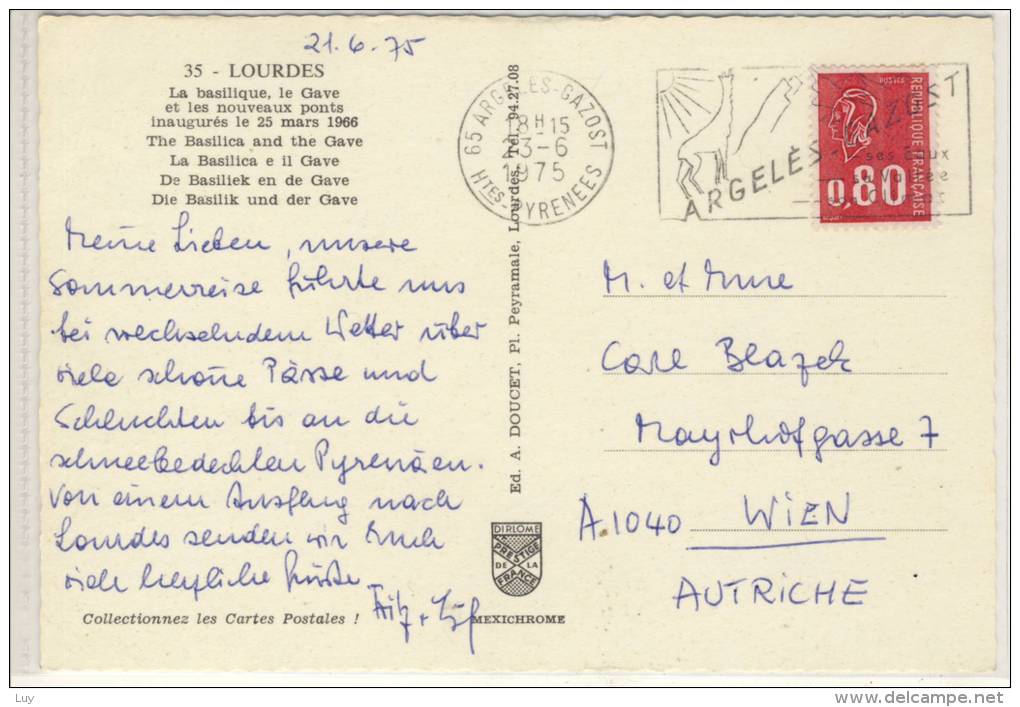 21.6.75
35 - LOURDES
La basilique, le Gave
et les nouveaux ponts
inaugurés le 25 mars 1966
The Basilica and the Gave
La Basilica e il Gave
De Basiliek en de Gave
Die Basilik und der Gave
Meine Lieben, unsere
Sommerreise führte uns
bei wechselndem Wetter über
viele schöne Pässe und
Schluchten bis an die
schneebedeckten Pyrenäen.
Von einem Ausflug nach
Lourdes senden wir Euch
viele herzliche Grüße
Fritz +
Collectionnez les Cartes Postales !
Ed. A. DOUCET, Pl. Peyramale, Lourdes, Tél. 94.27.08
DIPLOME
PRESTIGE
DE LA
FRANCE
MEXICHROME
65 ARGELES-GAZOST
18H15
23-6
1975
HTES-PYRENEES
ARGELES-GAZOST
ses Eaux
sa Vallée
POSTES
REPUBLIQUE FRANÇAISE
0,80
M. et Mme
Carl Blazek
Mayrhofgasse 7
A.1040 WIEN
AUTRICHE
Luy
delcampe.net